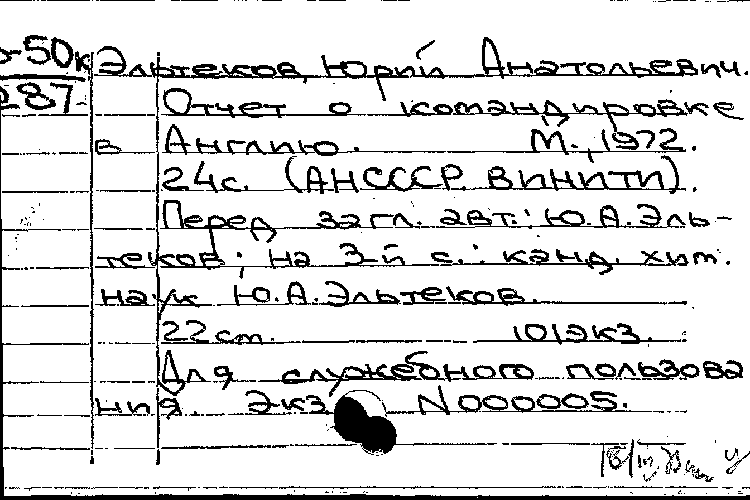 Эльтеков, Юрий Анатольевич.
287
Отчет о командировке
в Англию. М., 1972.
24с. (АНСССР. ВИНИТИ).
Перед загл. авт.: Ю.А.Эль-
теков; на 3-й с.: канд. хим.
наук Ю.А.Эльтеков.
22 см. 101экз.
Для служебного пользова
ния. Экз N000005.